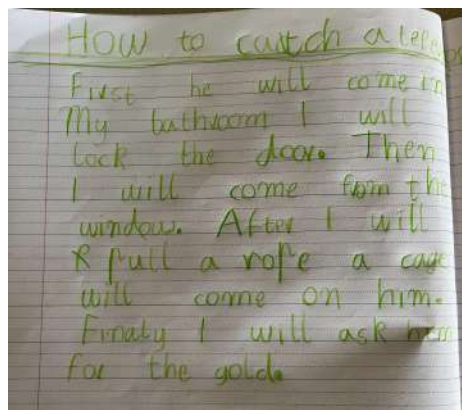 How to cautch a lepe
First he will come in
My bathroom I will
lock the door. Then
I will come from the
window. After I will
pull a rope a cage
will come on him.
Finaly I will ask him
for the gold.